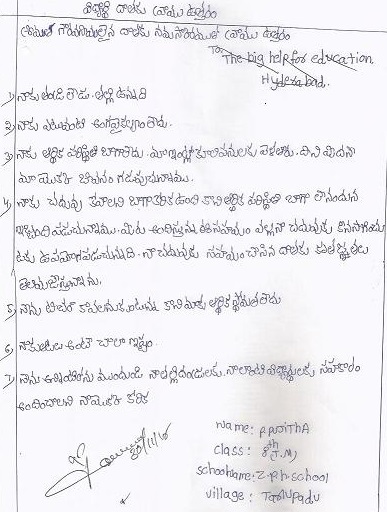 విద్యార్థి దాతకు వ్రాయు ఉత్తరం
గౌరవనీయులైన దాతకు నమస్కారములతో వ్రాయు ఉత్తరం
To
The big help for education,
Hyderabad.
1) నాకు తండ్రి లేడు. తల్లి ఉన్నది
2) నాకు ఎటువంటి అంగవైకల్యం లేదు.
3) నాకు ఆర్థిక పరిస్థితి బాగాలేదు. మా కూలిపనులకు వెళతారు. దీని మీదనే
మా యొక్క జీవనం గడుపుచున్నాము.
4) నాకు చదువు కోవాలని బాగా కోరిక ఉంది కాని ఆర్థిక పరిస్థితి బాగా లేనందున
ఇబ్బంది పడుచున్నాము. మీరు అందిస్తున్న సహాయం వల్ల నా చదువుకు
ఉపయోగపడుచున్నది. నా చదువుకు సహాయం చేసిన దాతకు కృతజ్ఞతలు
తెలియజేస్తున్నాను.
5) నేను టీచర్ కావాలనుకుంటున్న కాని మాకు ఆర్థిక స్థోమత లేదు
6) నాకు ఆటలు అంటే చాలా ఇష్టం.
7) నేను ముందుండి నా తల్లిదండ్రులకు, నాలాంటి విద్యార్థులకు సహకారం
అందించాలని నా యొక్క కోరిక
Name: P. PUJITHA
class: 8th (T.M)
school name: Z.P.h. school
village: Tallupadu